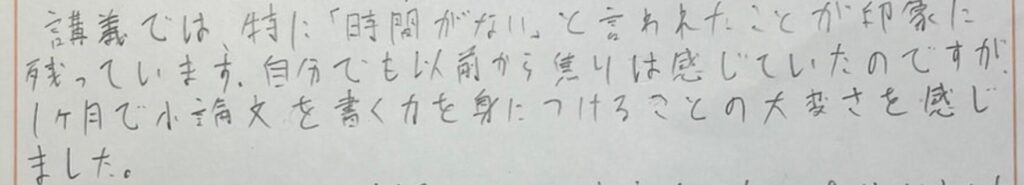 講義では、特に「時間がない」と言われたことが印象に
残っています。自分でも以前から焦りは感じていたのですが、
1ヶ月で小論文を書く力を身につけることの大変さを感じ
ました。